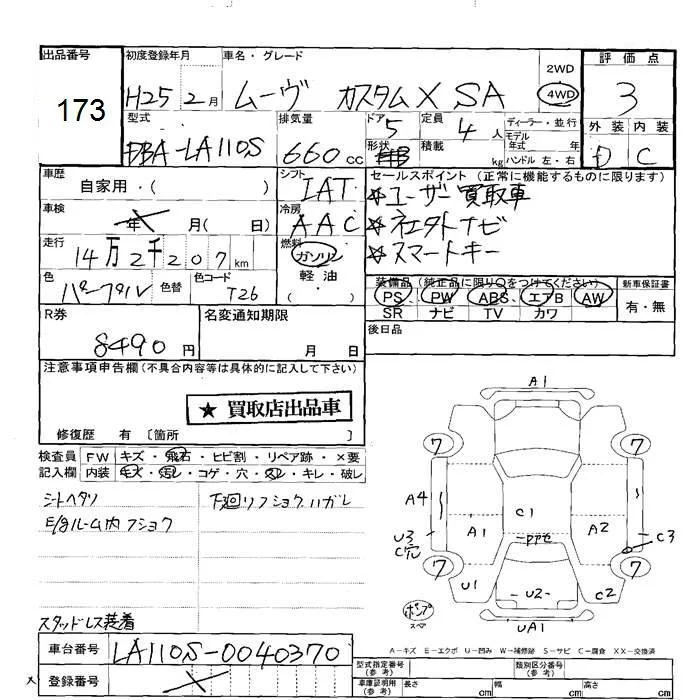 出品番号
173
初度登録年月
H25 2月
車名・グレード
ムーヴ カスタムX SA
2WD
4WD
評価点
3
外装 内装
D C
型式
DBA-LA110S
排気量
660cc
ドア
5
形状
定員
4人
積載
kg
ディーラー・並行
モデル
年式 年
ハンドル 左・右
車歴
自家用・( )
シフト
IAT
セールスポイント(正常に機能するものに限ります)
☆ユーザー買取車
☆社外ナビ
☆スマートキー
車検
年 月( 日)
冷房
AAC
走行
14万2千207km
燃料
ガソリン
軽油
( )
色
パープル
色替
色コード
T26
装備品(純正品に限り○をつけてください)
PS PW ABS エアB AW
SR ナビ TV カワ
新車保証書
有・無
R券
8490円
名変通知期限
月 日
後日品
注意事項申告欄(不具合内容等は具体的に記入して下さい)
★買取店出品車
修復歴 有〔箇所 〕
検査員 FW キズ・飛石・ヒビ割・リペア跡・×要
記入欄 内装 キズ・汚レ・コゲ・穴・スレ・キレ・破レ
シートヘタリ
下廻リフショクハガレ
E/gルーム内フショク
スタッドレス装着
A1
7 7
A4
C1
A1 A2
U3
C穴
C3
7 7
U1
U2
C2
ポンプ
スペア
UA1
A-キズ E-エクボ U-凹み W-補修跡 S-サビ C-腐食 XX-交換済
車台番号
LA110S-0040370
登録番号
型式指定番号
(参考)
類別区分番号
(参考)
車庫証明用
(参考)
長さ cm 幅 cm 高さ cm